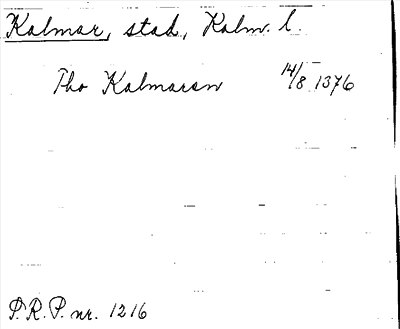 Kalmar, stad, Kalm. l.
Tho Kalmaren 14/8 1376
P. R. P. nr. 1216